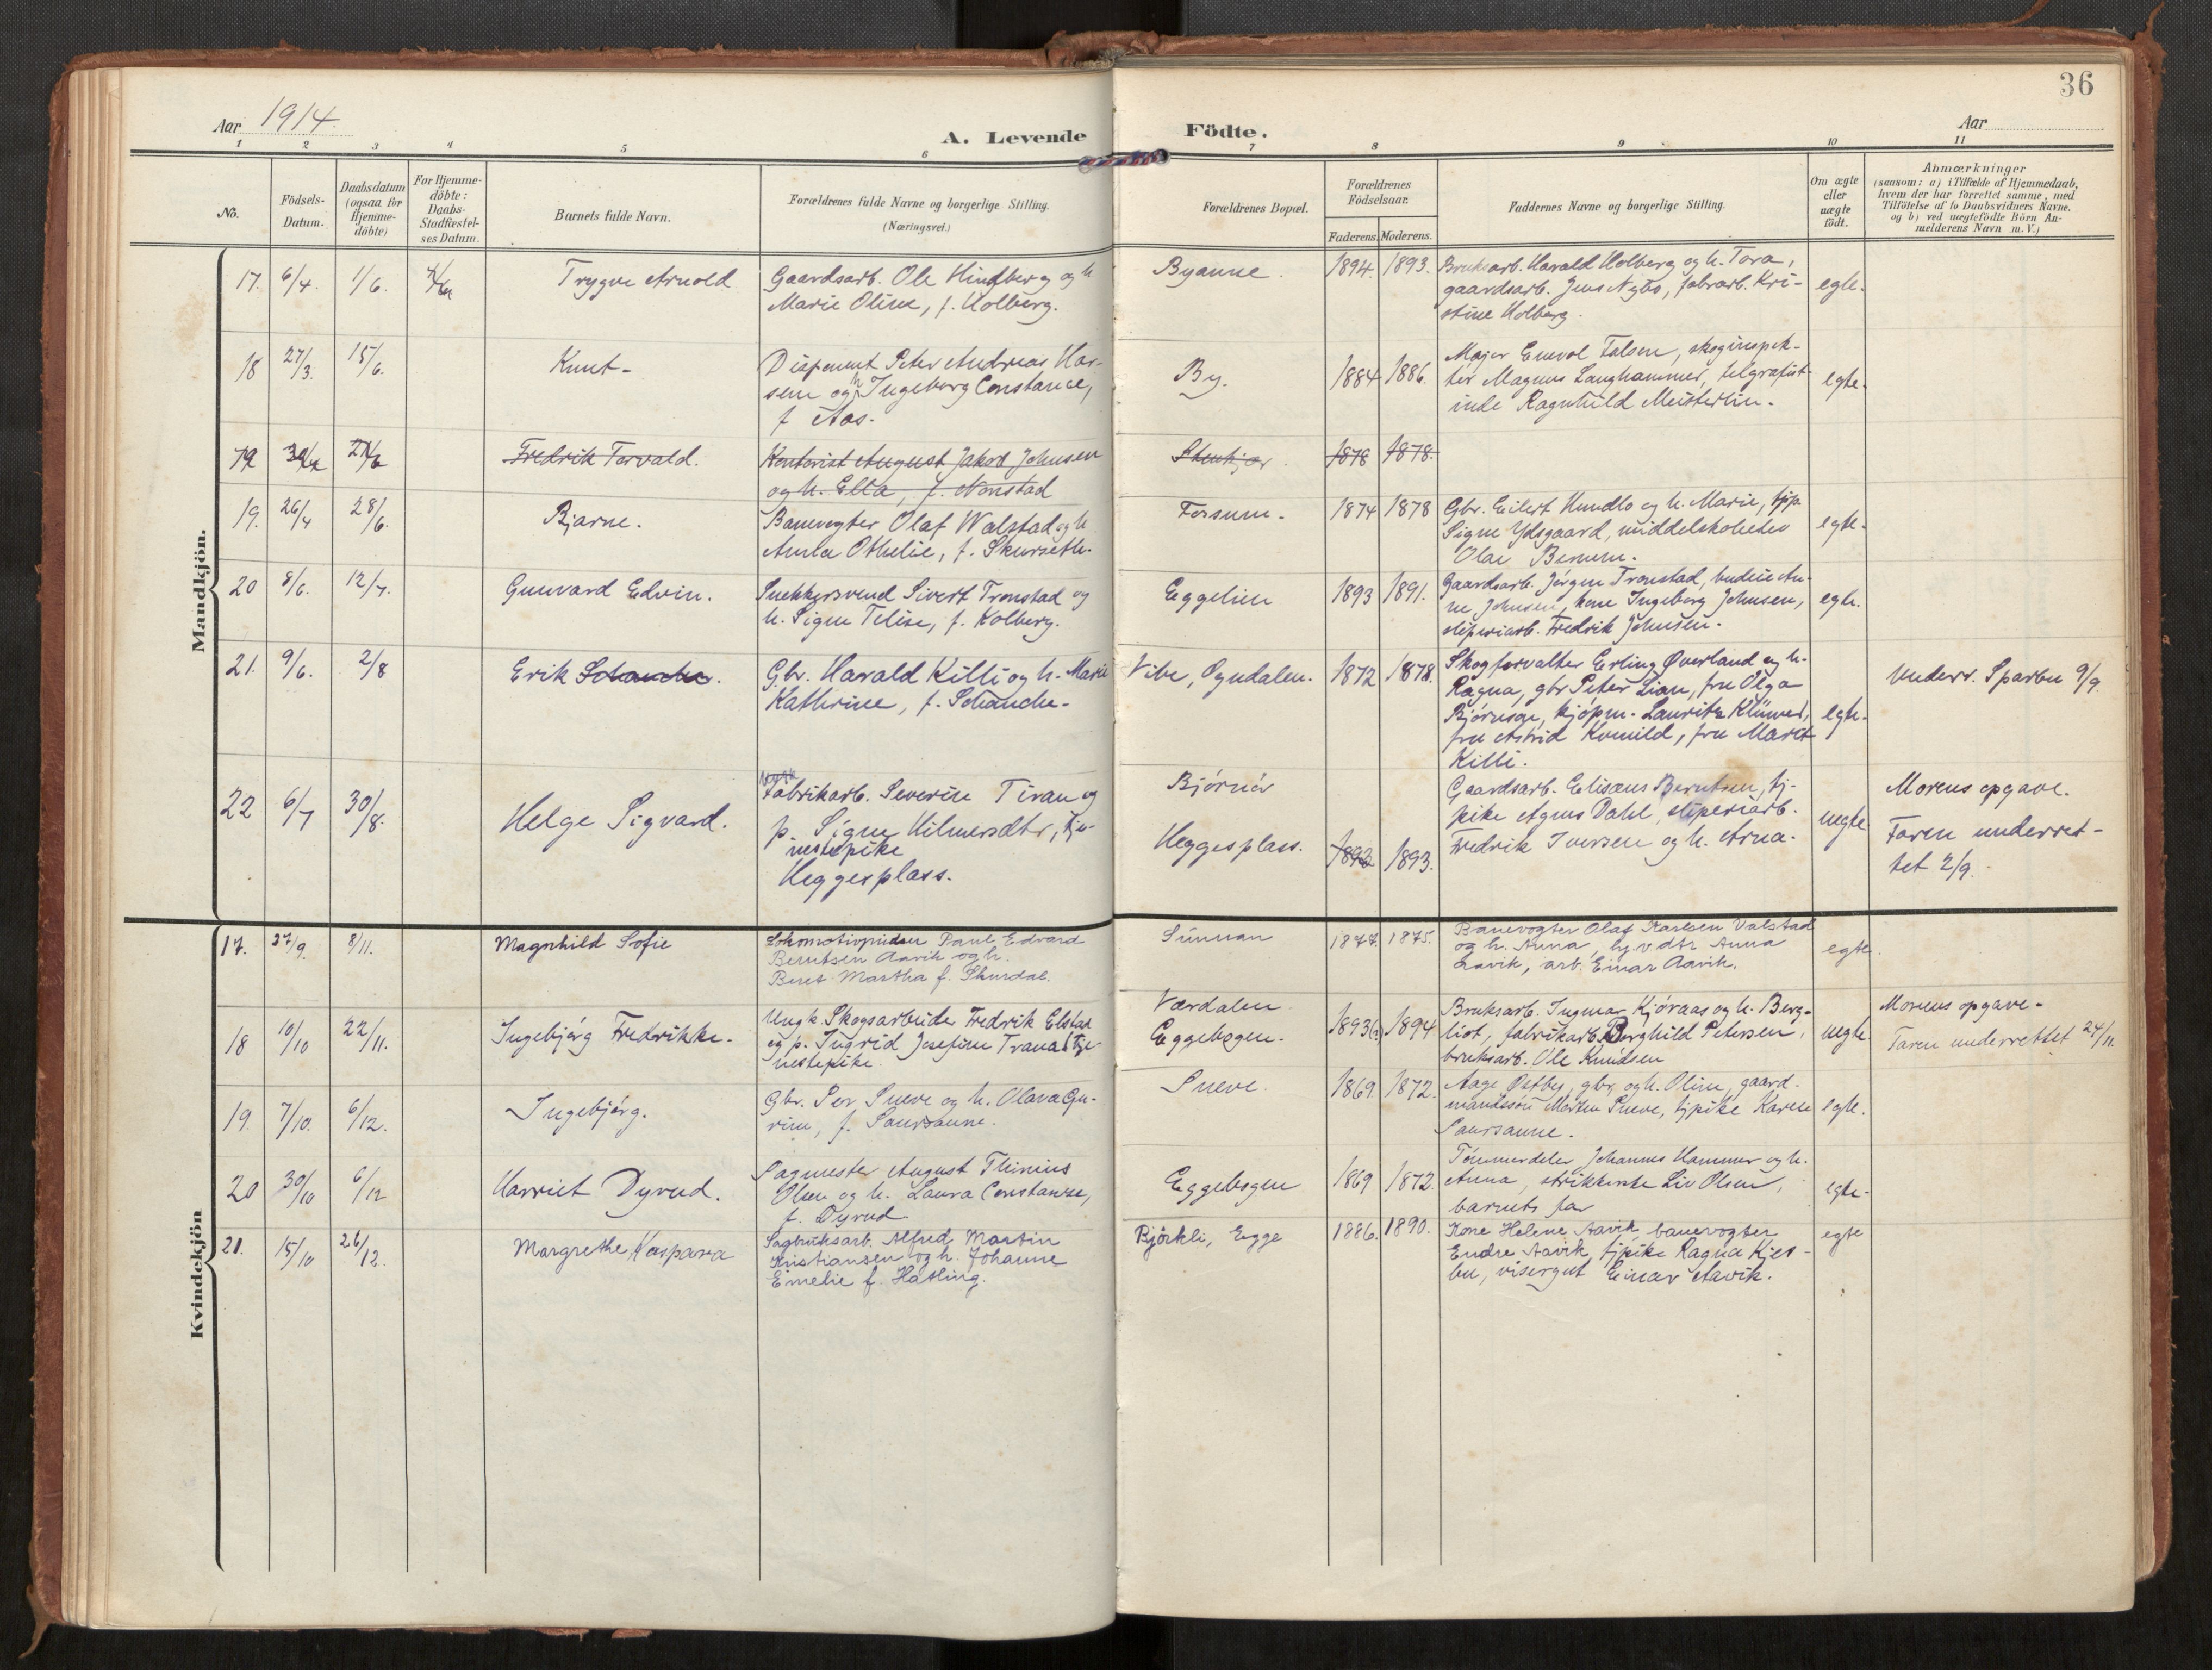 36
Aar 1914
A. Levende Födte.
Aar
1 2 3 4 5 6 7 8 9 10 11
No.
Födsels-
Datum.
Daabsdatum
(ogsaa for
Hjemme-
döbte)
For Hjemme-
döbte:
Daabs-
Stadfæstel-
ses Datum.
Barnets fulde Navn.
Forældrenes fulde Navne og borgerlige Stilling.
(Næringsvei.)
Forældrenes Bopæl.
Forældrenes
Födselsaar.
Faderens. Moderens.
Faddernes Navne og borgerlige Stilling.
Om ægte
eller
uægte
födt.
Anmærkninger
(saasom: a) i Tilfælde af Hjemmedaab,
hvem der har forrettet samme, med
Tilföielse af to Daabsvidners Navne,
og b) ved uegtefödte Börn An-
melderens Navn m. V.)
Mandkjön.
17. 6/4. 1/6.
Trygve Arnold
Gaardsarb. Ole Hindberg og h.
Marie Oline, f. Holberg.
Byanne.
1894. 1893.
Bruksarb. Harald Holberg og h. Tora,
gaardsarb. Jens Nybo, fabrarb. Kri-
stine Holberg.
egte.
18 27/3. 15/6.
Knut-
Disponent Peter Andreas Han-
sen og h. Ingeborg Constance,
f. Aas.
By.
1884 1886.
Major Enevol Falsen, skoginspek-
tör Magnus Langhammer, telgrafist-
inde Ragnhild Meisterlin.
egte.
19 30/4 21/6
Fredrik Torvald.
Kontorist August Jakob Johnsen
og h. Ella, f. Nonstad
Stenkjær.
1878 1878.
19. 26/4 28/6.
Bjarne.
Banevogter Olaf Walstad og h.
Anna Othelie, f. Skurseth.
Forsnm.
1874 1878
Gbr. Eilert Hundlo og h. Marie, tjp.
Signe Ydsgaard, middelskoleelev
Olav
egte.
20 8/6. 12/7.
Gunvard Edvin.
Snekkersvend Sivert Tronstad og
h. Signe Teline, f. Kolberg.
Eggelien
1893 1891.
Gaardsarb. Jörgen Tronstad, budeie An-
ne Johnsen, kone Ingeborg Johnsen,
sliperiarb. Fredrik Johnsen.
egte.
21. 9/6. 2/8
Erik Schanche.
Gbr. Harald Killi og h. Marie
Kathrine, f. Schanche.
Vibe, Ogndalen.
1872 1878.
Skogforvalter Erling Øverland og h.
Ragna, gbr Peter Lian, fru Olga
Björnson, kjöpm. Lauritz Klüwer,
fru Astrid Kvenild, fru Marit
Killi.
egte.
Underr. Sparbu 9/9.
22 6/7 30/8.
Helge Sigvard.
Fabrikarb. Severin Tiran og
p. Signe Hilmersdtr, tje-
nestepike
Heggesplass.
Björnör
Heggesplass.
1892 1893.
Gaardsarb. Elisæus Berntsen, tj.
pike Agnes Dahl, sliperiarb.
Fredrik Iversen og h. Arna.
uegte
Morens opgave.
Faren underret-
tet 2/9.
Kvindekjön
17. 27/9. 8/11.
Magnhild Sofie
Lokomotivpudser Paul Edvard
Berntsen Aavik og h.
Beret Martha f. Skurdal.
Sunnan
1847. 1875.
Banevogter Olaf Karlsen Valstad
og h. Anna, bg.v dtr Anna
Aavik, arb. Einar Aavik.
egte.
18 10/10 22/11.
Ingebjörg Fredrikke.
Ungk. Skogsarbeider Fredrik Elstad
og p. Ingrid Josefine Trana, tje-
nestepike.
Værdalen.
Eggebogen.
1893 1894
Bruksarb. Ingmar Kjöraas og h. Berg-
liot, fabrikarb. Borghild Petersen,
bruksarb. Ole Knudsen
uegte
Morens opgave.
Faren underrettet 24/11.
19. 7/10. 6/12.
Ingebjörg.
Gbr. Per Sneve og h. Olava Gu-
rine, f. Saursaune.
Sneve.
1869. 1872.
Aage Østby, gbr, og h. Oline, gaard-
mandssön Martin Sneve, tjpike Karen
Saursaune.
egte.
20 30/10 6/12
Harriet Dyrud.
Sagmester August Thinius
Olsen og h. Laura Constanse,
f. Dyrud
Eggebogen
1869 1872.
Tömmerdeler Johannes Hammer og h.
Anna, strikkerske Liv Olsen,
barnets far
egte.
21. 15/10 26/12.
Margrethe Kaspara
Sagbruksarb. Alfred Martin
Kristiansen og h. Johanne
Emelie f. Hatling.
Björkli, Egge
1886. 1890.
Kone Helene Aavik, banevogter
Endre Aavik, tjpike Ragna Kjes-
bu, visergut Einar Aavik.
egte